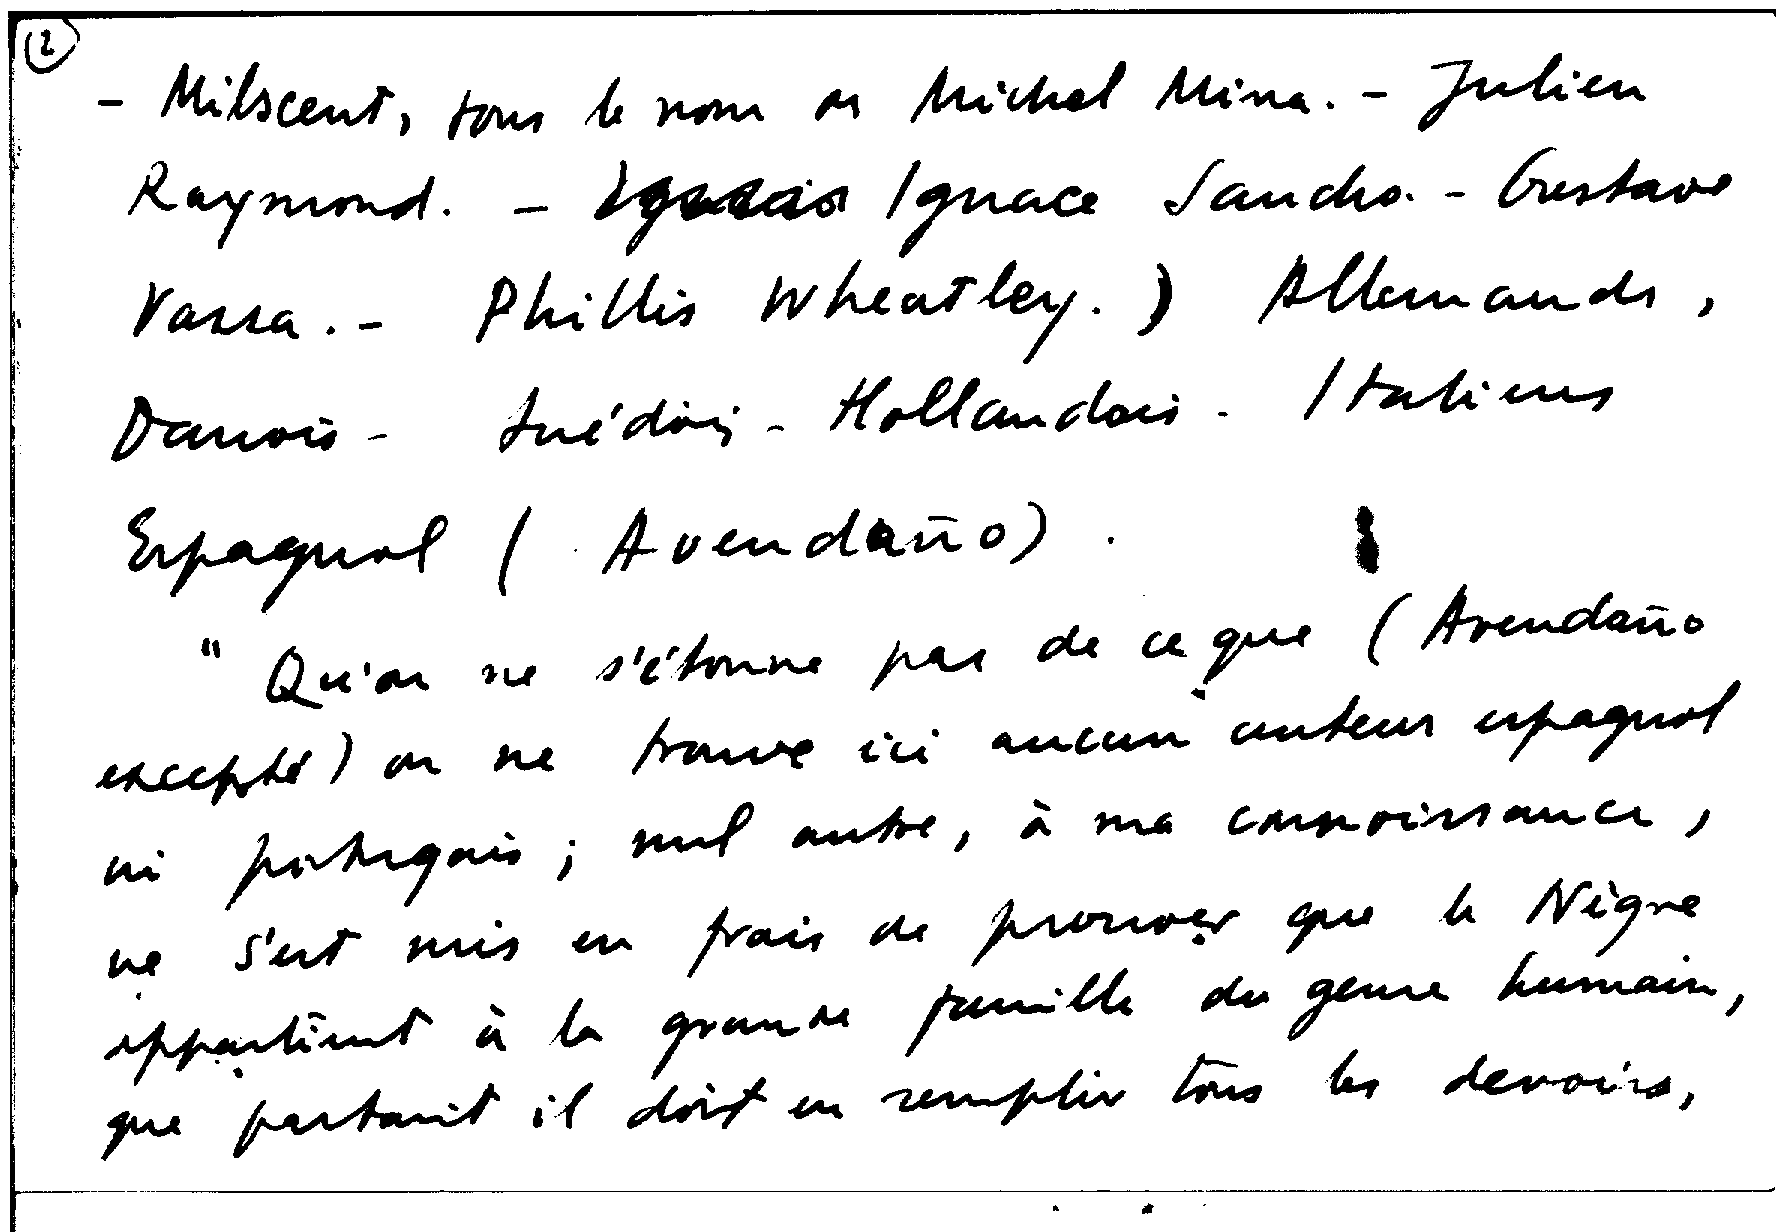 2
- Milscent, sous le nom de Michel Mina. - Julien
Raymond. - Ignace Sancho. - Gustave
Vassa. - Phillis Wheatley. ) Allemands,
Danois - Suédois - Hollandais - Italiens
Espagnol ( Avendaño) .
" Qu'on ne s'étonne pas de ce que ( Avendaño
excepté) on ne trouve ici aucun auteur espagnol
ni portugais ; nul autre, à ma connoissance,
ne s'est mis en frais de prouver que le Nègre
appartient à la grande famille du genre humain,
que partant il doit en remplir tous les devoirs,